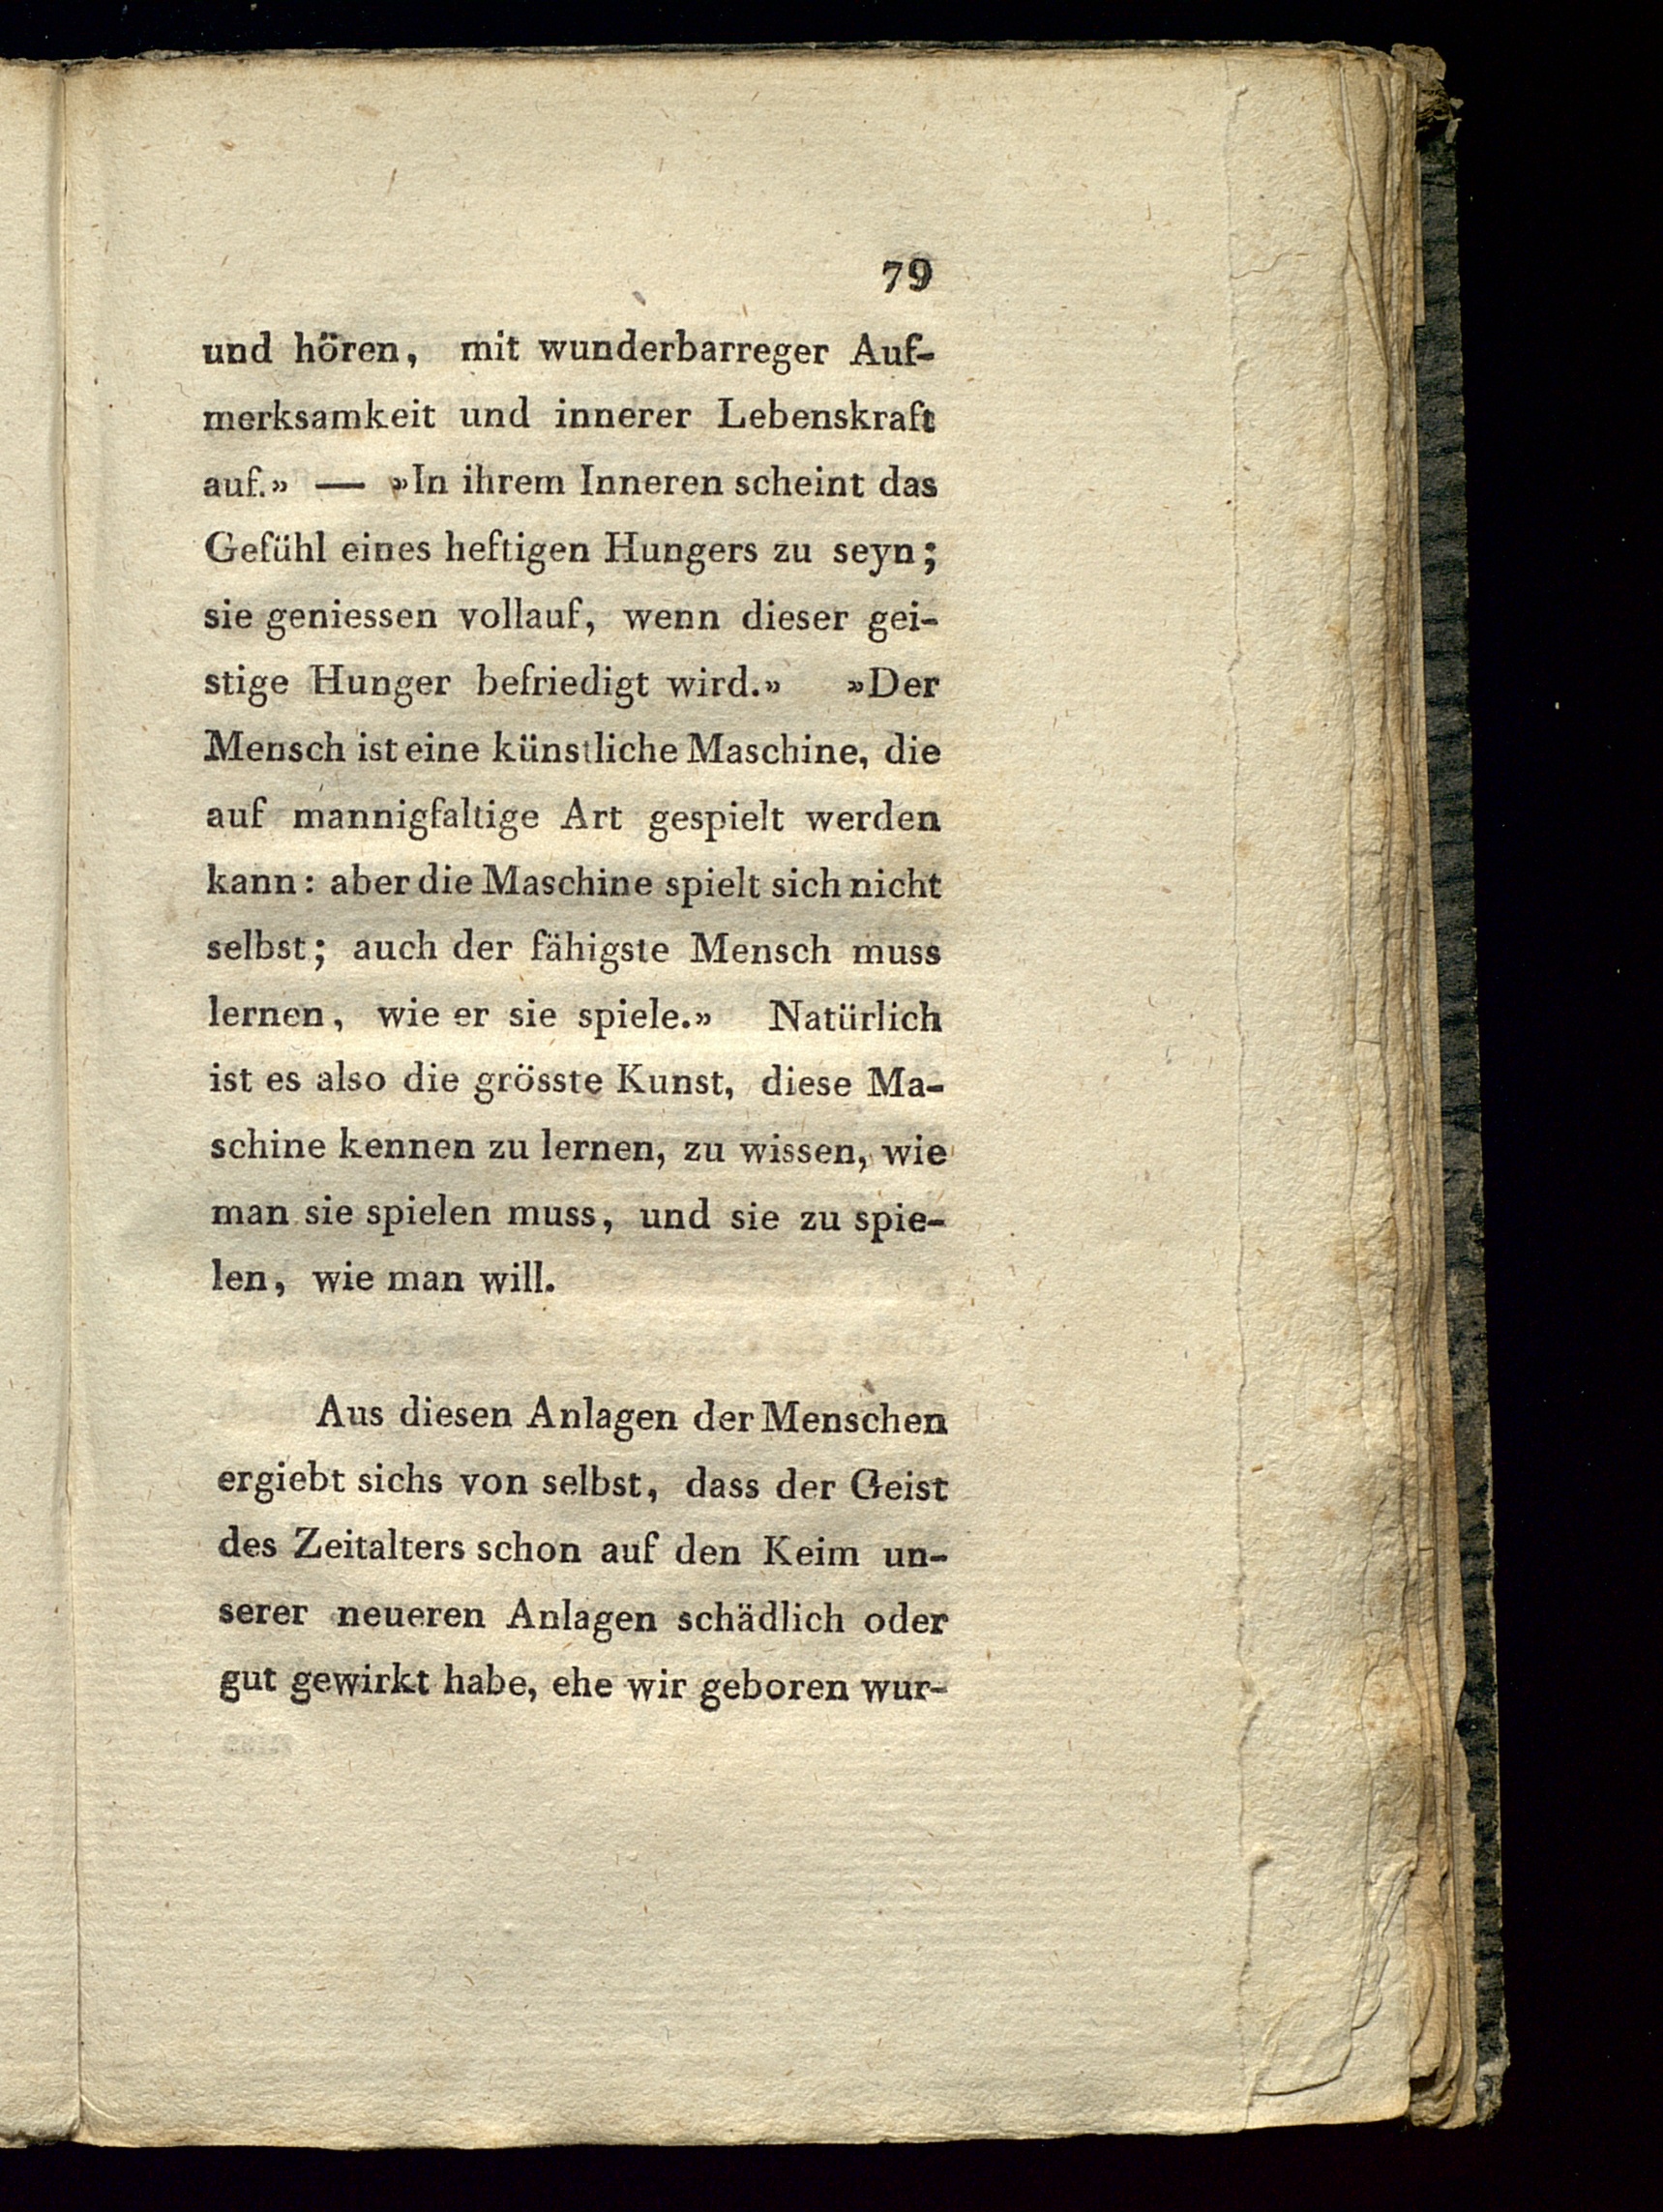 79
und hören, mit wunderbarreger Auf-
merksamkeit und innerer Lebenskraft
auf.» — »In ihrem Inneren scheint das
Gefühl eines heftigen Hungers zu seyn;
sie geniessen vollauf, wenn dieser gei-
stige Hunger befriedigt wird.» »Der
Mensch ist eine künstliche Maschine, die
auf mannigfaltige Art gespielt werden
kann: aber die Maschine spielt sich nicht
selbst; auch der fähigste Mensch muss
lernen, wie er sie spiele.» Natürlich
ist es also die grösste Kunst, diese Ma-
schine kennen zu lernen, zu wissen, wie
man sie spielen muss, und sie zu spie-
len, wie man will.
Aus diesen Anlagen der Menschen
ergiebt sichs von selbst, dass der Geist
des Zeitalters schon auf den Keim un-
serer neueren Anlagen schädlich oder
gut gewirkt habe, ehe wir geboren wur-